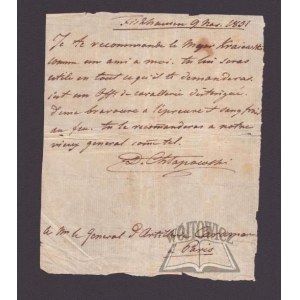 9 Nov. 1831
Je te recommande le Major
comme un ami a moi. tu lui seras
utile en tout ce qu'il te demandera
c'est un Off. de cavallerie distingué
d'une bravoure a l'epreuve et sang froid
au feu. tu le recomanderas a notre
vieux general come tel.
D. Chłapowski
a Mr le General d'Artillerie
a Paris
WÓJTOWICZ